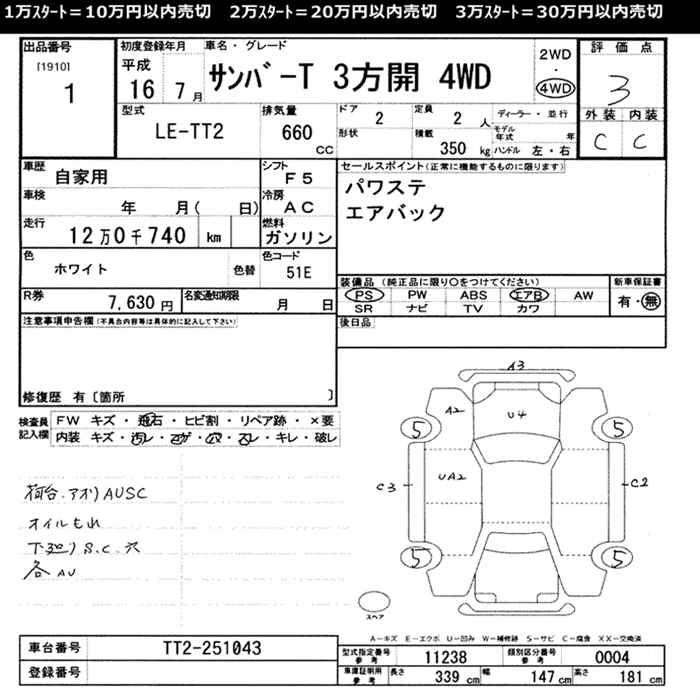 1万ｽﾀｰﾄ＝10万円以内売切　2万ｽﾀｰﾄ＝20万円以内売切　3万ｽﾀｰﾄ＝30万円以内売切
出品番号
[1910]
1
初度登録年月
平成
16 7月
車名・グレード
サンバーT 3方開 4WD
2WD
・
4WD
評価点
3
外装 内装
C C
型式
LE-TT2
排気量
660
CC
ドア
2
定員
2人
ディーラー・並行
形状
積載
350 kg
モデル年式 年
ハンドル 左・右
車歴
自家用
シフト
F5
車検
年 月( 日)
冷房
AC
走行
12万0千740 km
燃料
ガソリン
色
ホワイト
色替
色コード
51E
R券
7,630円
名変通知期限
月 日
セールスポイント(正常に機能するものに限ります)
パワステ
エアバック
装備品（純正品に限り○をつけてください）
PS PW ABS エアB AW
SR ナビ TV カワ
新車保証書
有・無
後日品
注意事項申告欄(不具合内容等は具体的に記入して下さい)
修復歴 有〔箇所 〕
検査員記入欄
FW キズ・飛石・ヒビ割・リペア跡・×要
内装 キズ・汚レ・コゲ・穴・スレ・キレ・破レ
荷台.アオリAUSC
オイルもれ
下廻りS.C.穴
各AU
A3
A2
U4
5
5
UA2
C3
C2
5
5
スペア
A－キズ E－エクボ U－凹み W－補修跡 S－サビ C－腐食 XX－交換済
車台番号
TT2-251043
登録番号
型式指定番号
参考
11238
類別区分番号
参考
0004
車庫証明用
参考
長さ
339 cm
幅
147 cm
高さ
181 cm